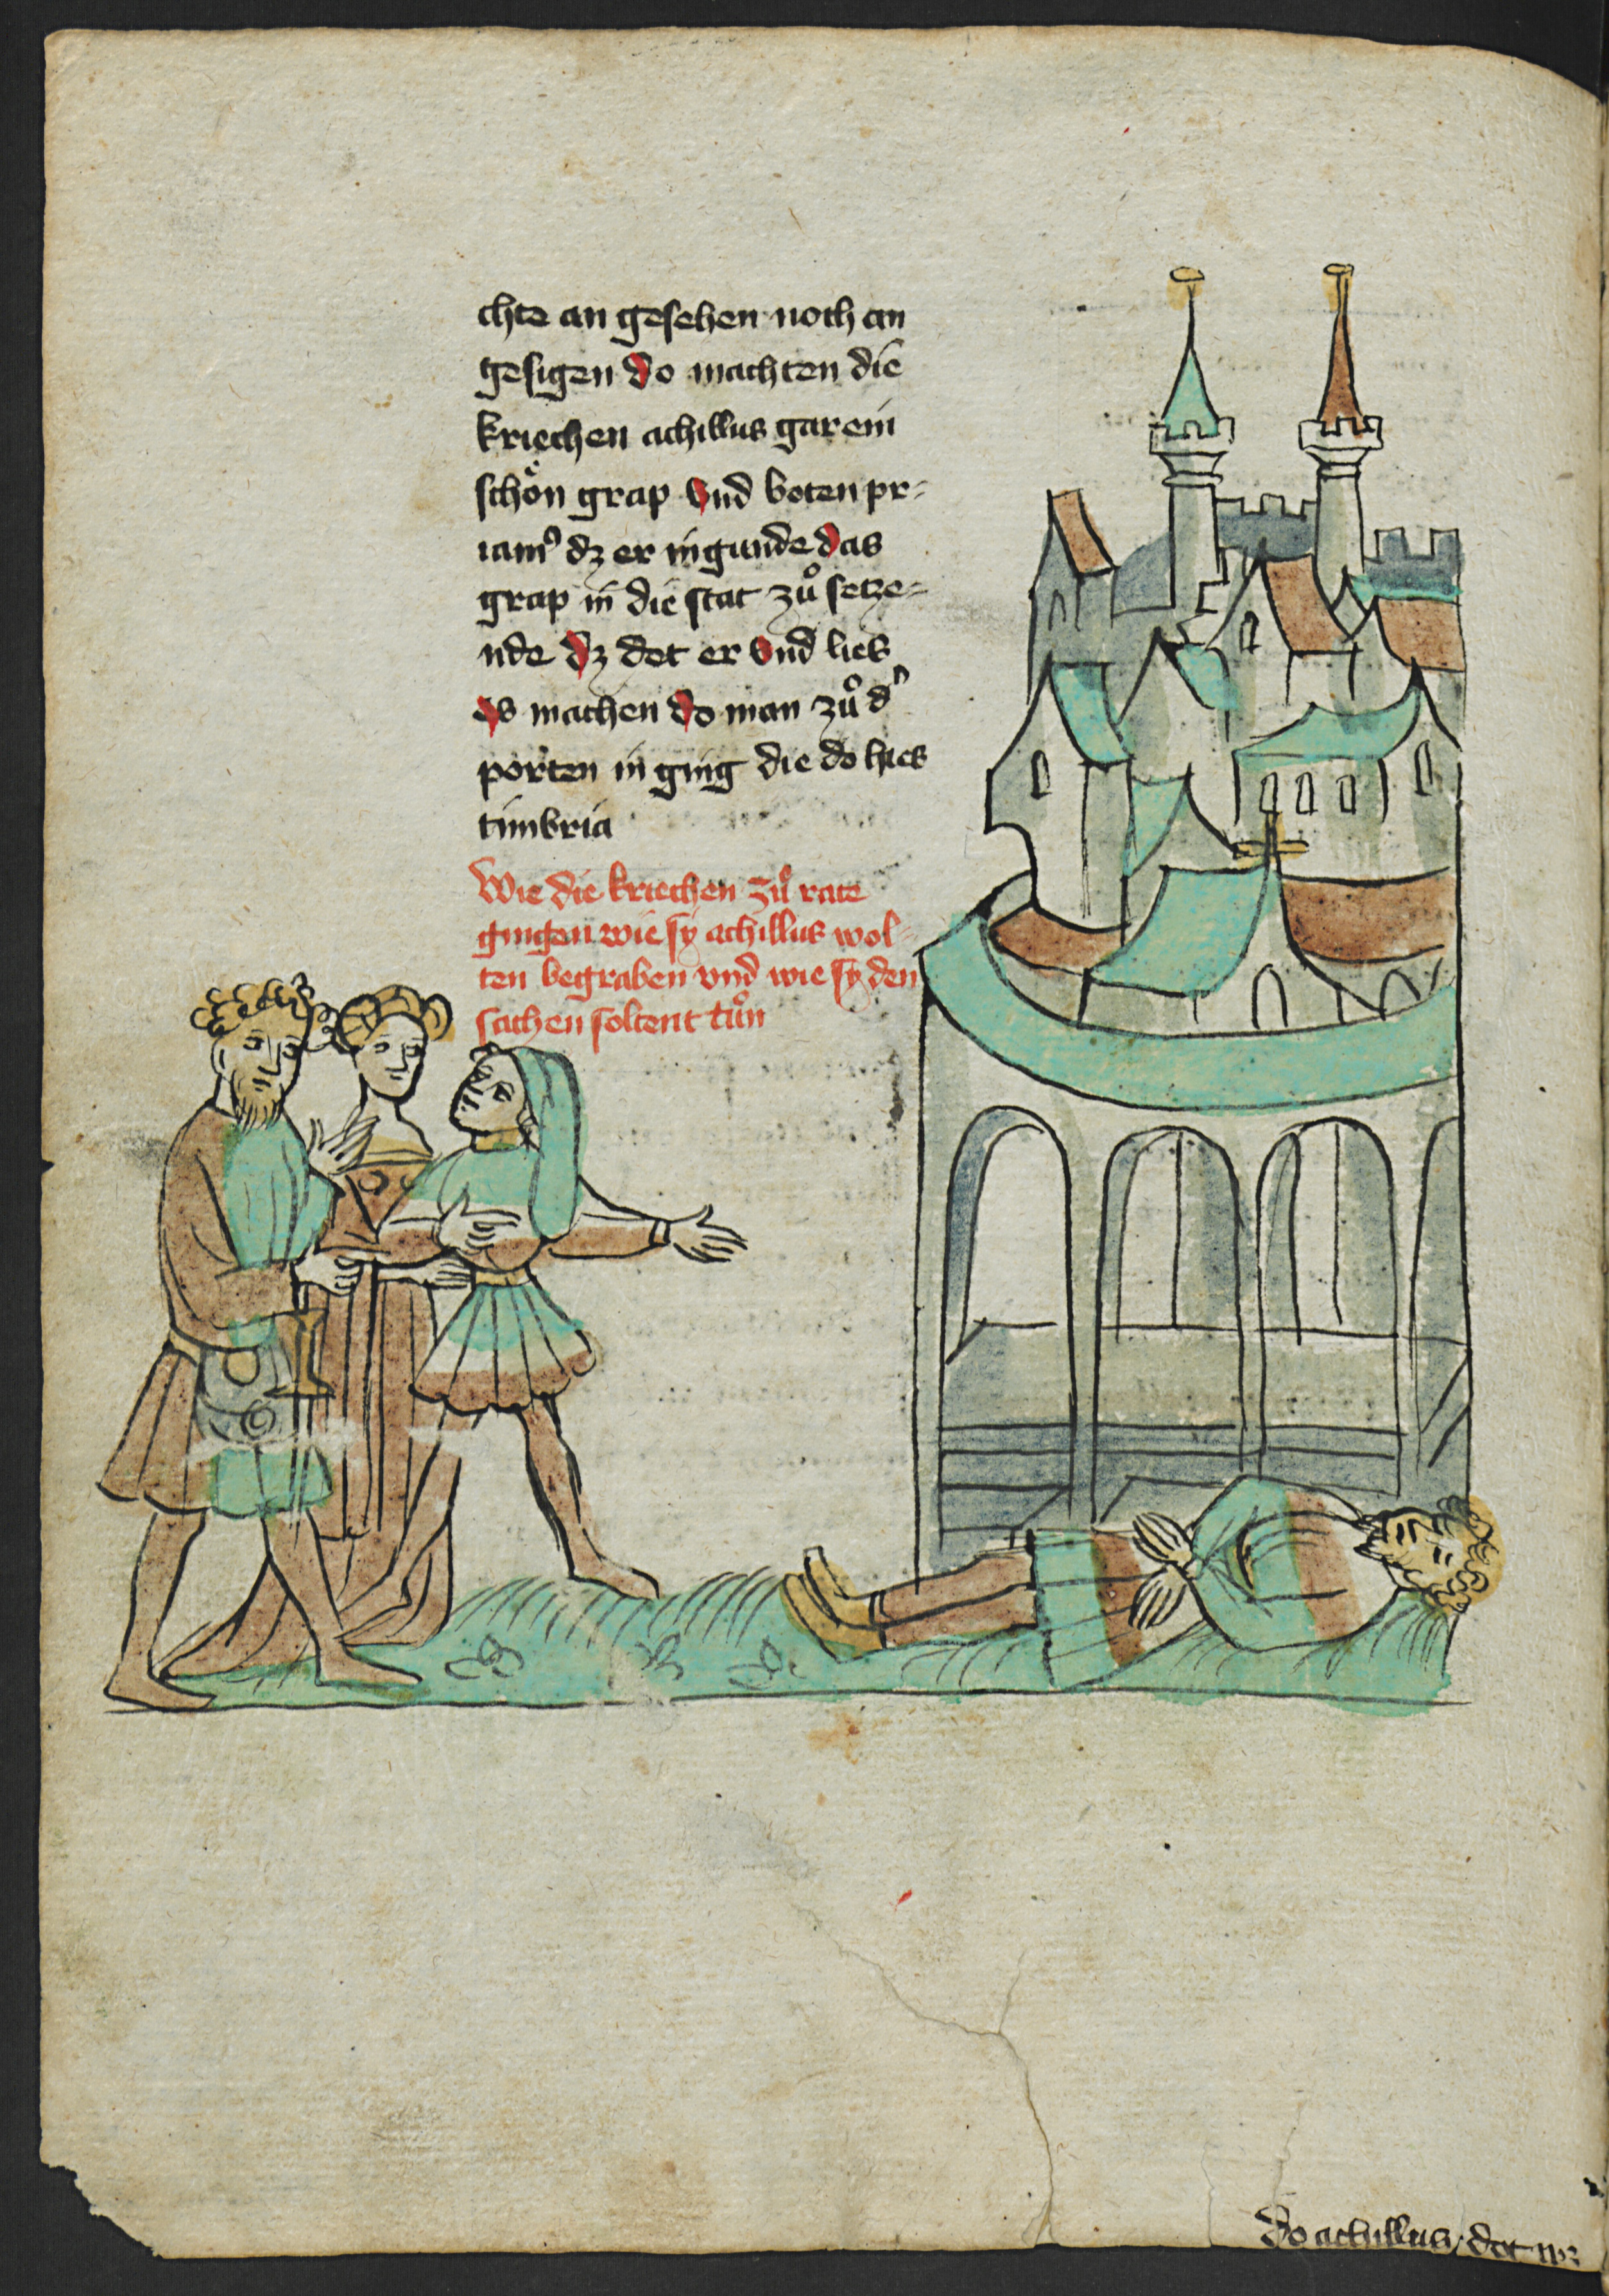 chte an gesehen noch an
gesigen do machten die
kriechen achillus gar ein
schön grap vnd boten pr=
iamꝰ dz er in gunde das
grap in die stat zuͦ setze=
nde dz det er vnd lies
es machen do man zuͦ dͬ
porten in ging die do hies
timbria
Wie die kriechen zuͦ rate
gingen wie sy achillus wol=
ten begraben vnd wie sy den
sachen soltent tuͦn
Do achillus dot